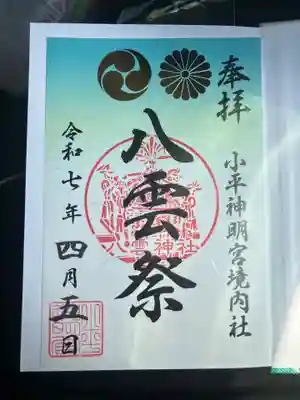 奉拝
小平神明宮境内社
八雲祭
令和七年四月五日